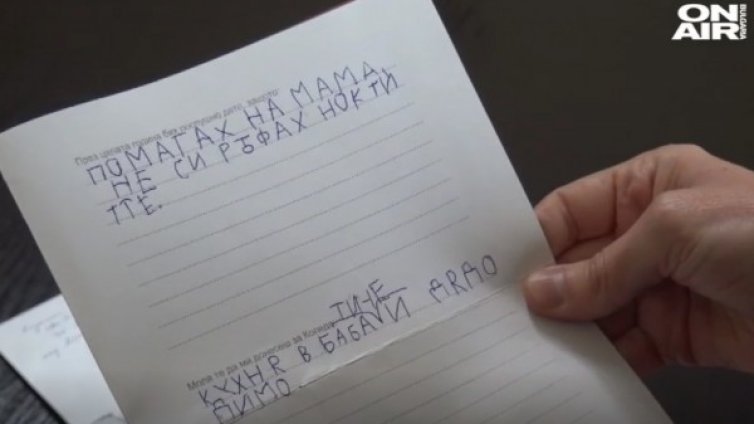 ON
AIR
BULGARIA
През цялата година бях послушно дете, защото:
ПОМАГАХ НА МАМА,
НЕ СИ РЪФАХ НОКТИ
ТТЕ.
ТИНЕ
Моля те да ми донесеш за Коледа
КУХНЯ В БАБА И ДЯДО
ДИМО